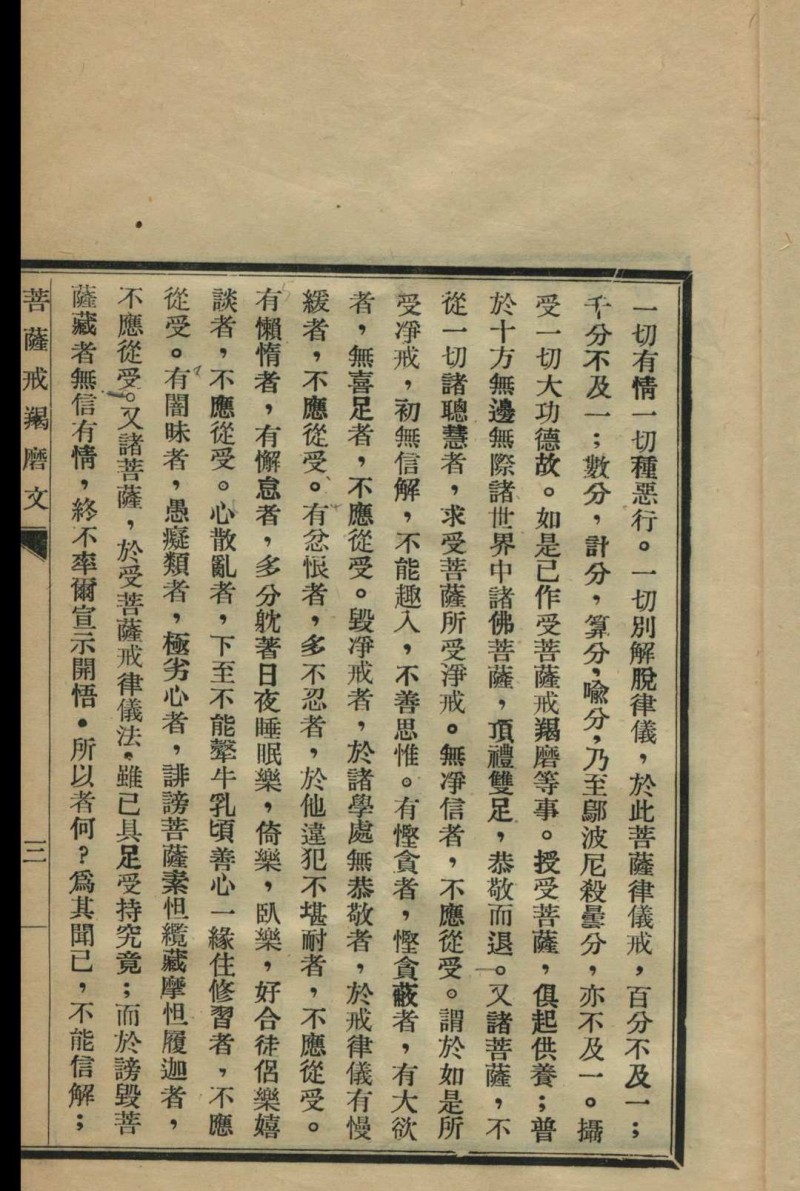 一切有情一切種惡行。一切別解脫律儀，於此菩薩律儀戒，百分不及一；
千分不及一；數分，計分，算分，喻分，乃至鄔波尼殺曇分，亦不及一。攝
受一切大功德故。如是已作受菩薩戒羯磨等事。授受菩薩，俱起供養；普
於十方無邊無際諸世界中諸佛菩薩，頂禮雙足，恭敬而退。又諸菩薩，不
從一切諸聰慧者，求受菩薩所受淨戒。無淨信者，不應從受。謂於如是所
受淨戒，初無信解，不能趣入，不善思惟。有慳貪者，慳貪蔽者，有大欲
者，無喜足者，不應從受。毀淨戒者，於諸學處無恭敬者，於戒律儀有慢
緩者，不應從受。有忿恨者，多不忍者，於他違犯不堪耐者，不應從受。
有懶惰者，有懈怠者，多分躭著日夜睡眠樂，倚樂，臥樂，好合徒侶樂嬉
談者，不應從受。心散亂者，下至不能搫牛乳頃善心一緣住修習者，不應
從受。有闇昧者，愚癡類者，極劣心者，誹謗菩薩素怛纜藏摩怛履迦者，
不應從受。又諸菩薩，於受菩薩戒律儀法，雖已具足受持究竟；而於謗毀菩
薩藏者無信有情，終不率爾宣示開悟。所以者何？爲其聞已，不能信解；
菩薩戒羯磨文
三